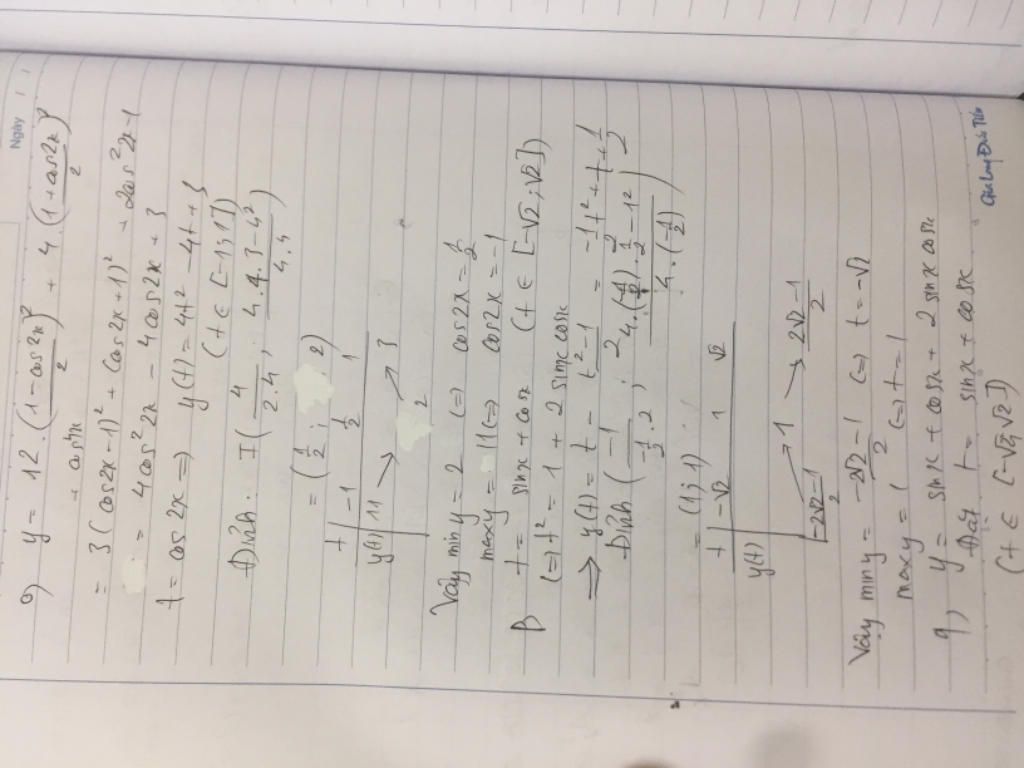 Ngày
o) y = 12.((1-cos2x)/2)² + 4.((1+cos2x)/2)²
+ cos4x
= 3(cos2x-1)² + (cos2x+1)² + 2cos²2x-1
= 4cos²2x - 4cos2x + 3
t = cos2x => y(t) = 4t² - 4t + 3
(t ∈ [-1;1])
Đỉnh. I(4/2.4; 4.4.3-4²/4.4)
= (1/2; 2)
t | -1 1/2 1
y(t) | 11 ↘ 2 ↗ 3
Vậy min y = 2 (=) cos2x = 1/2
max y = 11 (=) cos2x = -1
p t = sinx + cosx (t ∈ [-√2;√2])
(=) t² = 1 + 2sinx cosx
=> y(t) = t - (t²-1)/2 = -1/2 t² + t + 1/2
Đỉnh (-1/(-1/2 .2); 4.(-1/2).1/2 - 1²/4.(-1/2))
= (1;1)
t | -√2 1 √2
y(t) | (-2√2-1)/2 ↗ 1 ↘ (2√2-1)/2
Vậy min y = (-2√2-1)/2 (=) t = -√2
max y = 1 (=) t = 1
q) y = sinx + cosx + 2sinx cosx
Đặt t = sinx + cosx
(t ∈ [-√2;√2])